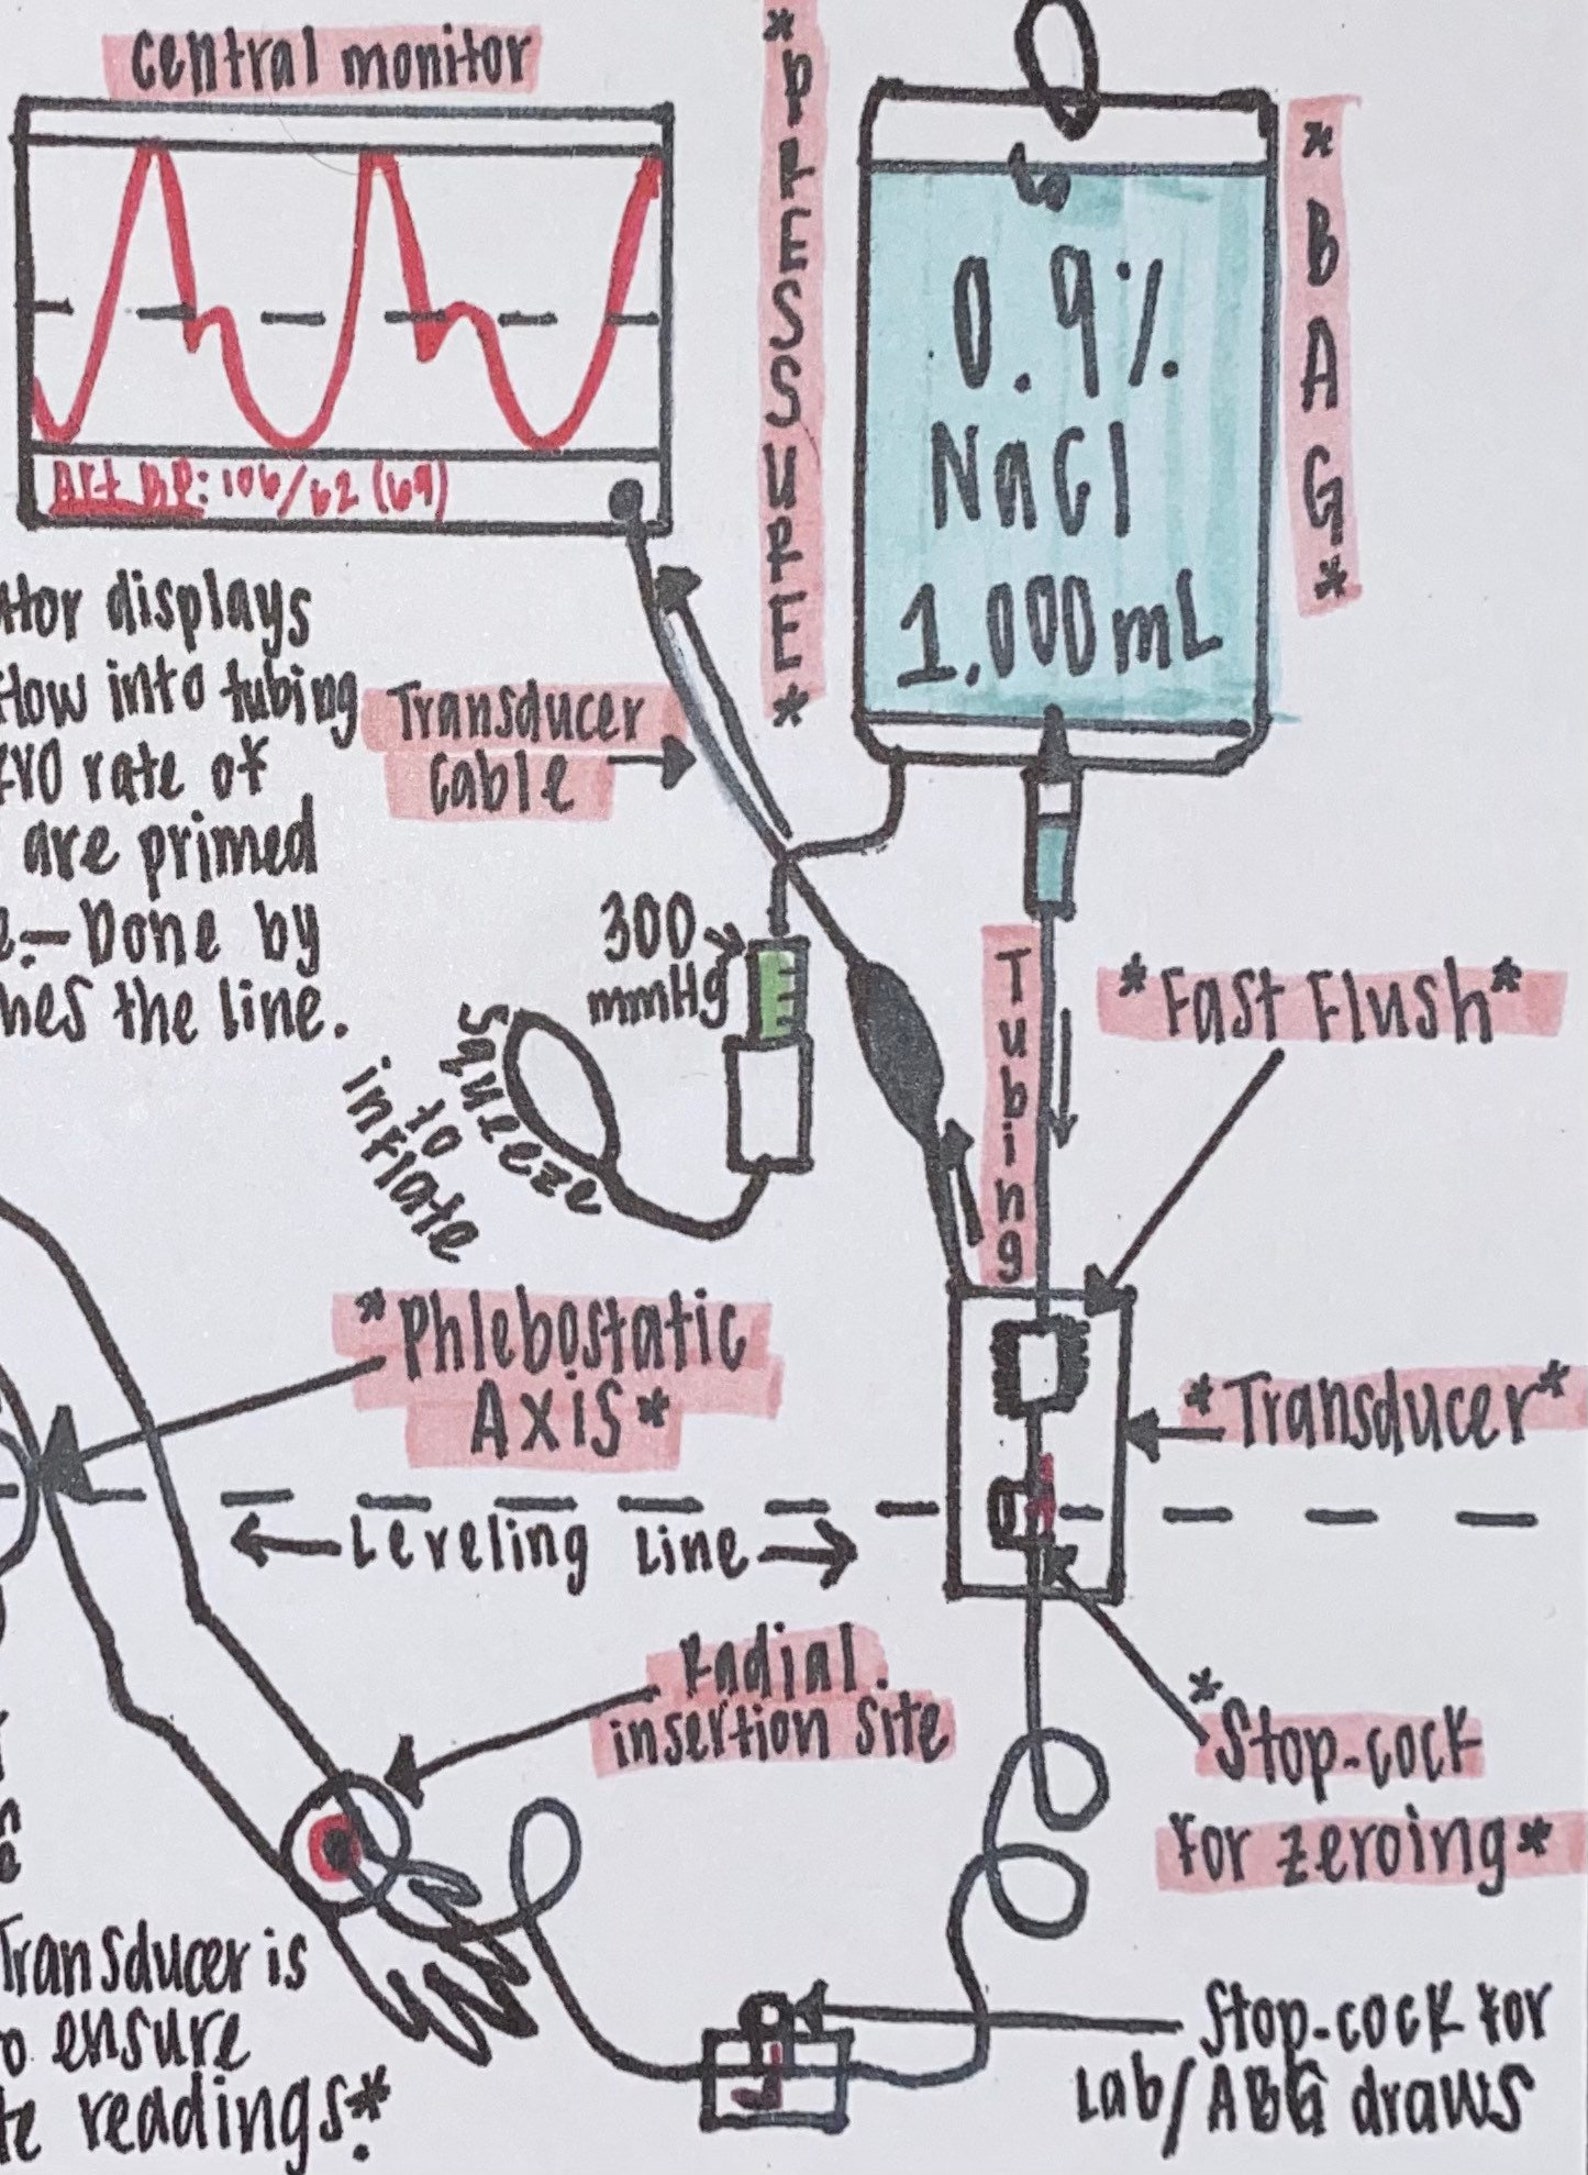 Central monitor
*PRESSURE*
*BAG*
0.9%
NaCl
1,000mL
Art BP: 106/62 (69)
displays
flow into tubing
rate of
are primed
Done by
the line.
Transducer
Cable
300
mmHg
Squeeze
to
inflate
Tubing
*Fast Flush*
*Phlebostatic
Axis*
*Transducer*
Leveling Line
Radial
insertion site
*Stop-cock
for zeroing*
Transducer is
ensure
readings.*
Stop-cock for
Lab/ABG draws